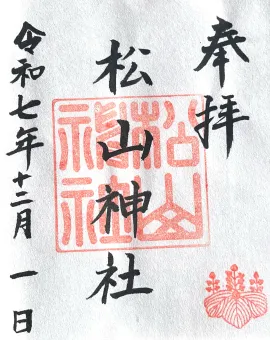 奉拝
松山神社
松山神社
令和七年十二月一日